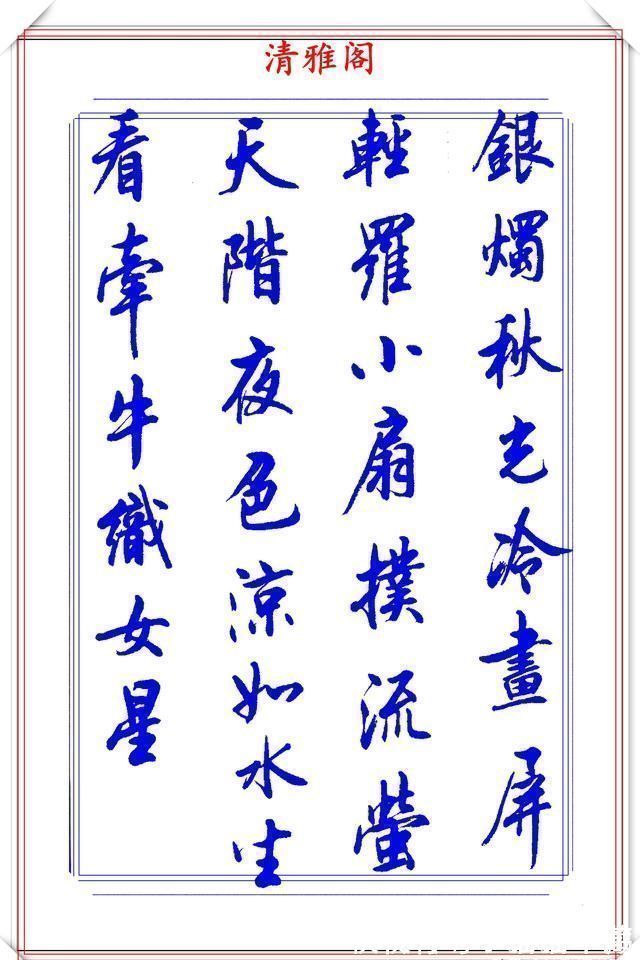 清雅阁
銀燭秋光冷畫屏
輕羅小扇撲流螢
天階夜色涼如水坐
看牽牛織女星